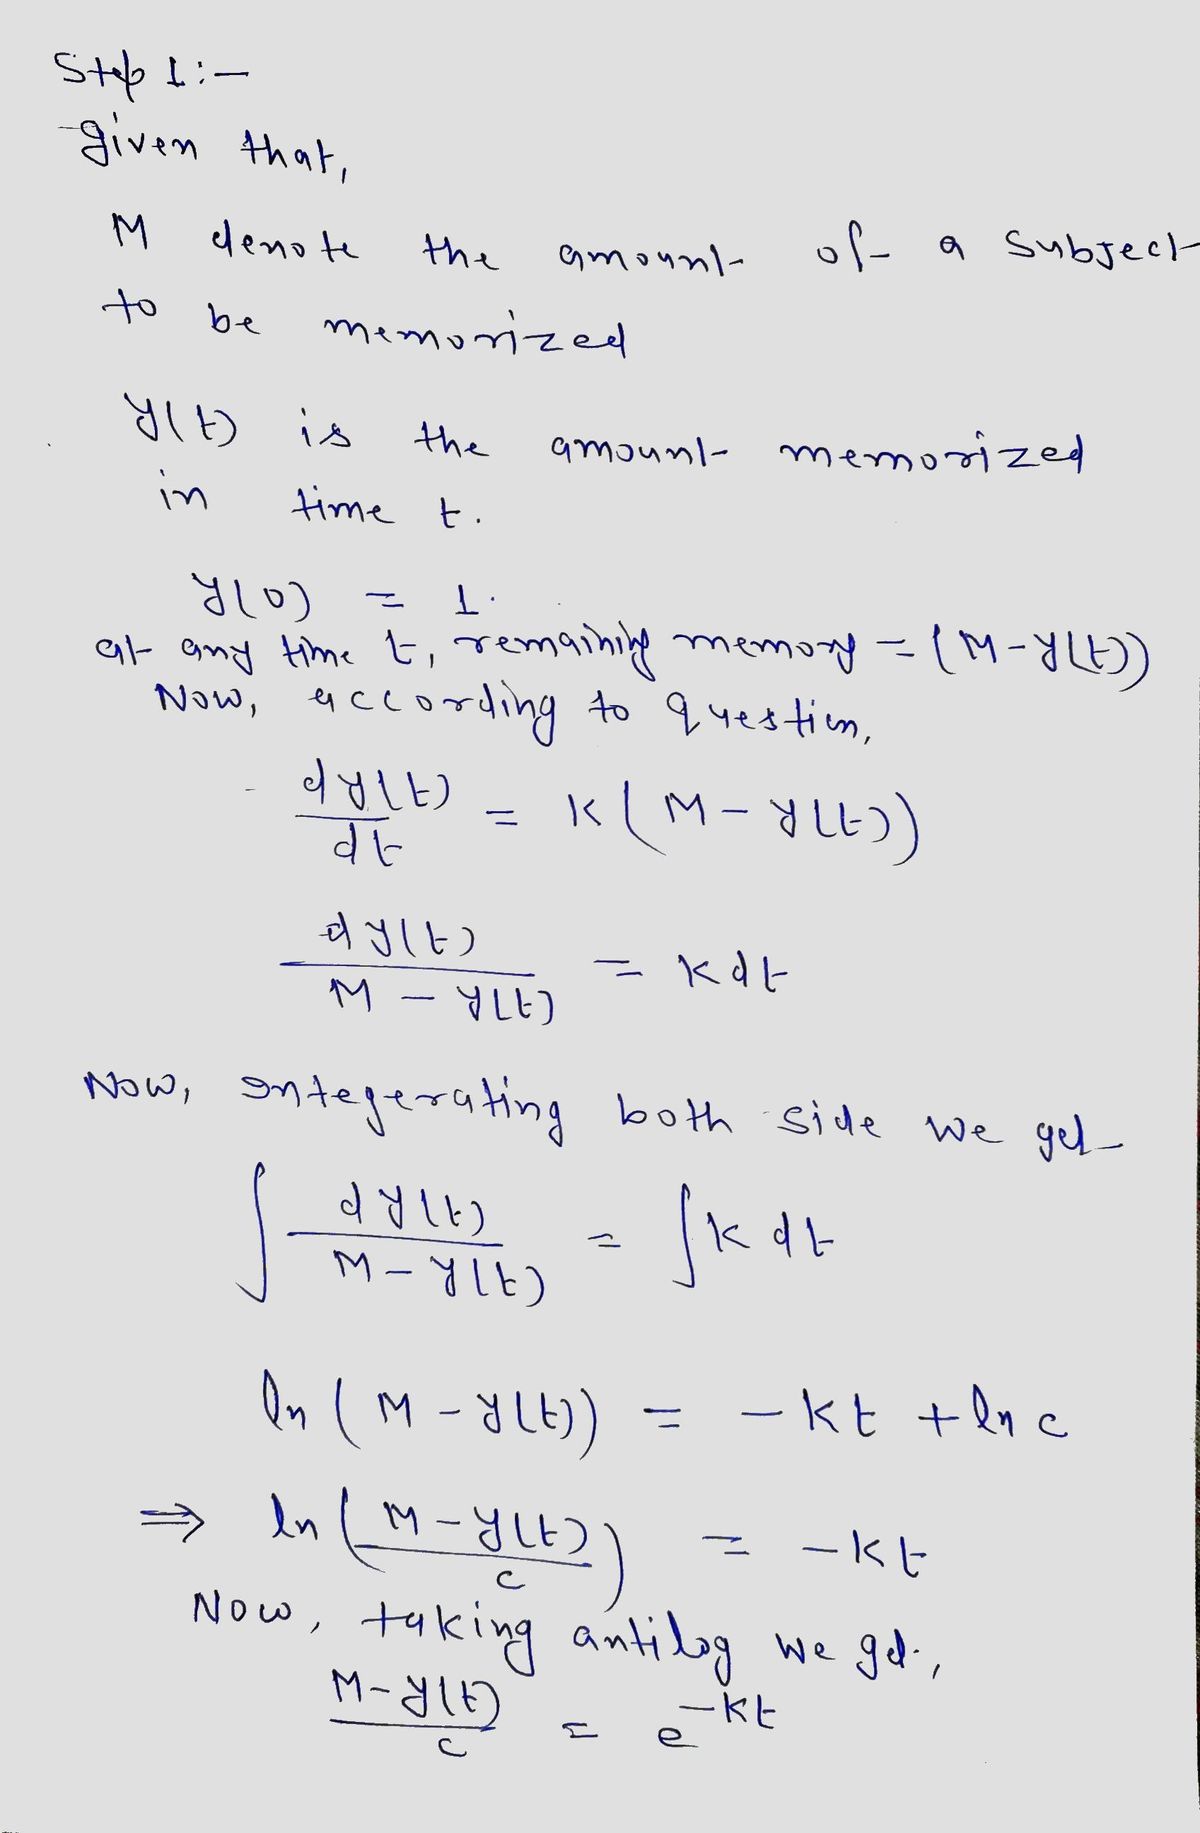 Step 1:-
given that,
M denote the amount of a subject
to be memorized
y(t) is the amount memorized
in time t.
y(0) = 1.
at any time t, remaining memory = (M-y(t))
Now, according to question,
dy(t)/dt = K(M-y(t))
dy(t)/(M-y(t)) = kdt
Now, Integerating both side we get
∫ dy(t)/(M-y(t)) = ∫k dt
ln(M-y(t)) = -kt + ln c
⇒ ln((M-y(t))/c) = -kt
Now, taking antilog we get,
(M-y(t))/c = e^-kt